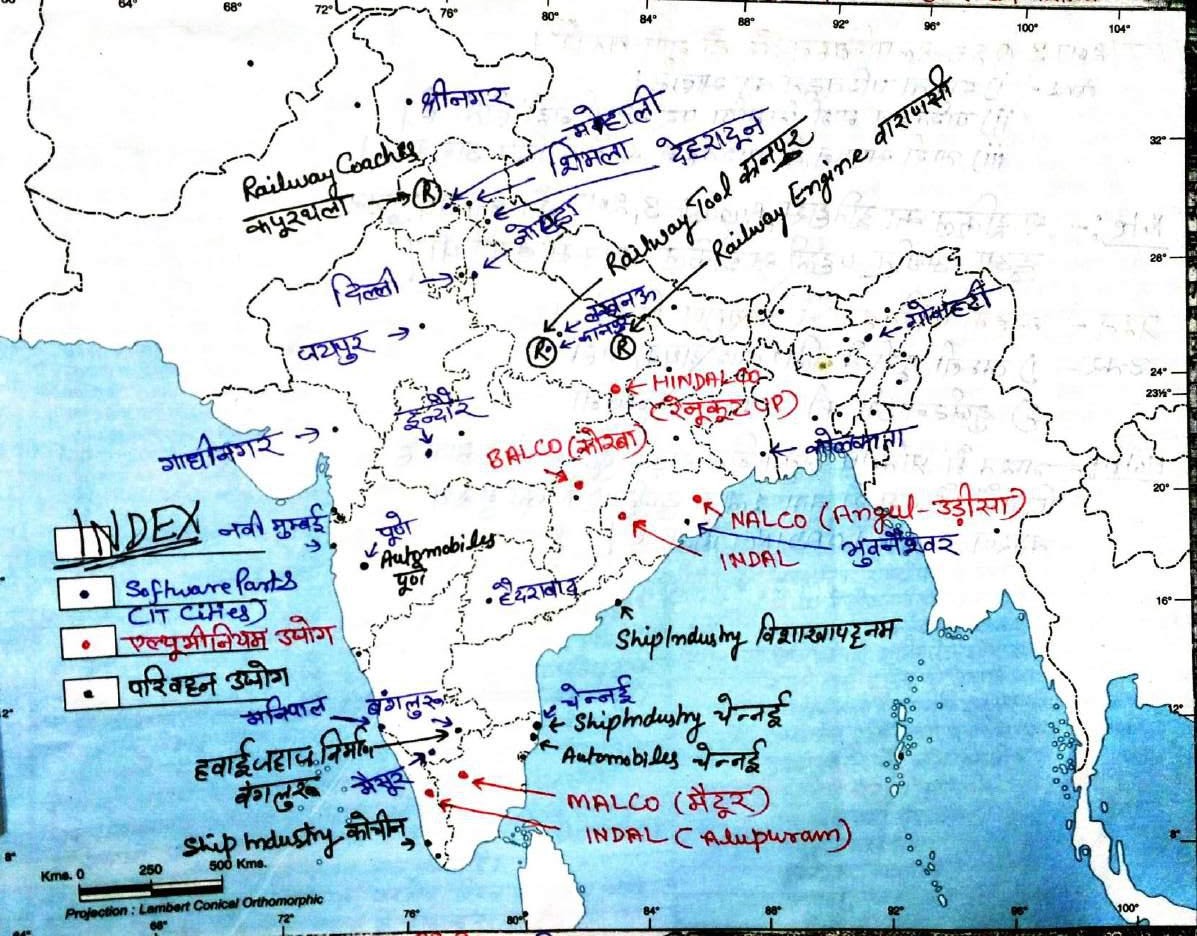 64°
68°
72°
76°
80°
84°
88°
92°
96°
100°
104°
श्रीनगर
मोहाली
शिमला
देहरादून
Railway Coaches
कपूरथला
R
नोएडा
Railway Tool कानपुर
Railway Engine वाराणसी
32°
28°
दिल्ली
लखनऊ
कानपुर
R
R
गोवाहटी
जयपुर
24°
23½°
HINDALCO
(रेनूकूट UP)
इन्दौर
BALCO (कोरबा)
गाधीनगर
कोलकाता
20°
INDEX
नवी मुम्बई
पूणे
Automobiles
पूणे
NALCO (Angul-उड़ीसा)
भुवनेश्वर
INDAL
Software Parks
(IT Cities)
हैदराबाद
16°
एल्यूमीनियम उद्योग
Ship Industry विशाखापट्टनम
परिवहन उद्योग
2°
12°
मनिपाल
बंगलुरू
चेन्नई
Ship Industry चेन्नई
हवाई जहाज निर्माण
बंगलुरू
Automobiles चेन्नई
मैसूर
MALCO (मैटूर)
INDAL (Alupuram)
Ship Industry कोचीन
8°
8°
Kms. 0 250 500 Kms.
Projection : Lambert Conical Orthomorphic
64°
68°
72°
76°
80°
84°
88°
92°
96°
100°